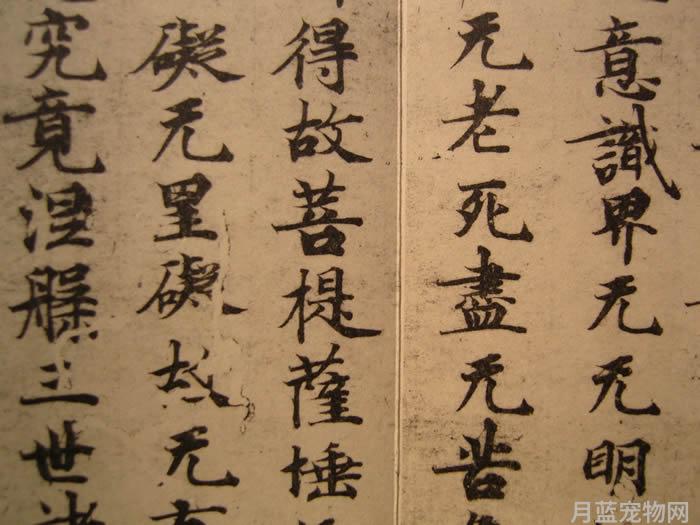 意識界无无明
无老死盡无苦
得故菩提薩埵
礙无罣礙故无
究竟涅槃三世諸
月蓝宠物网